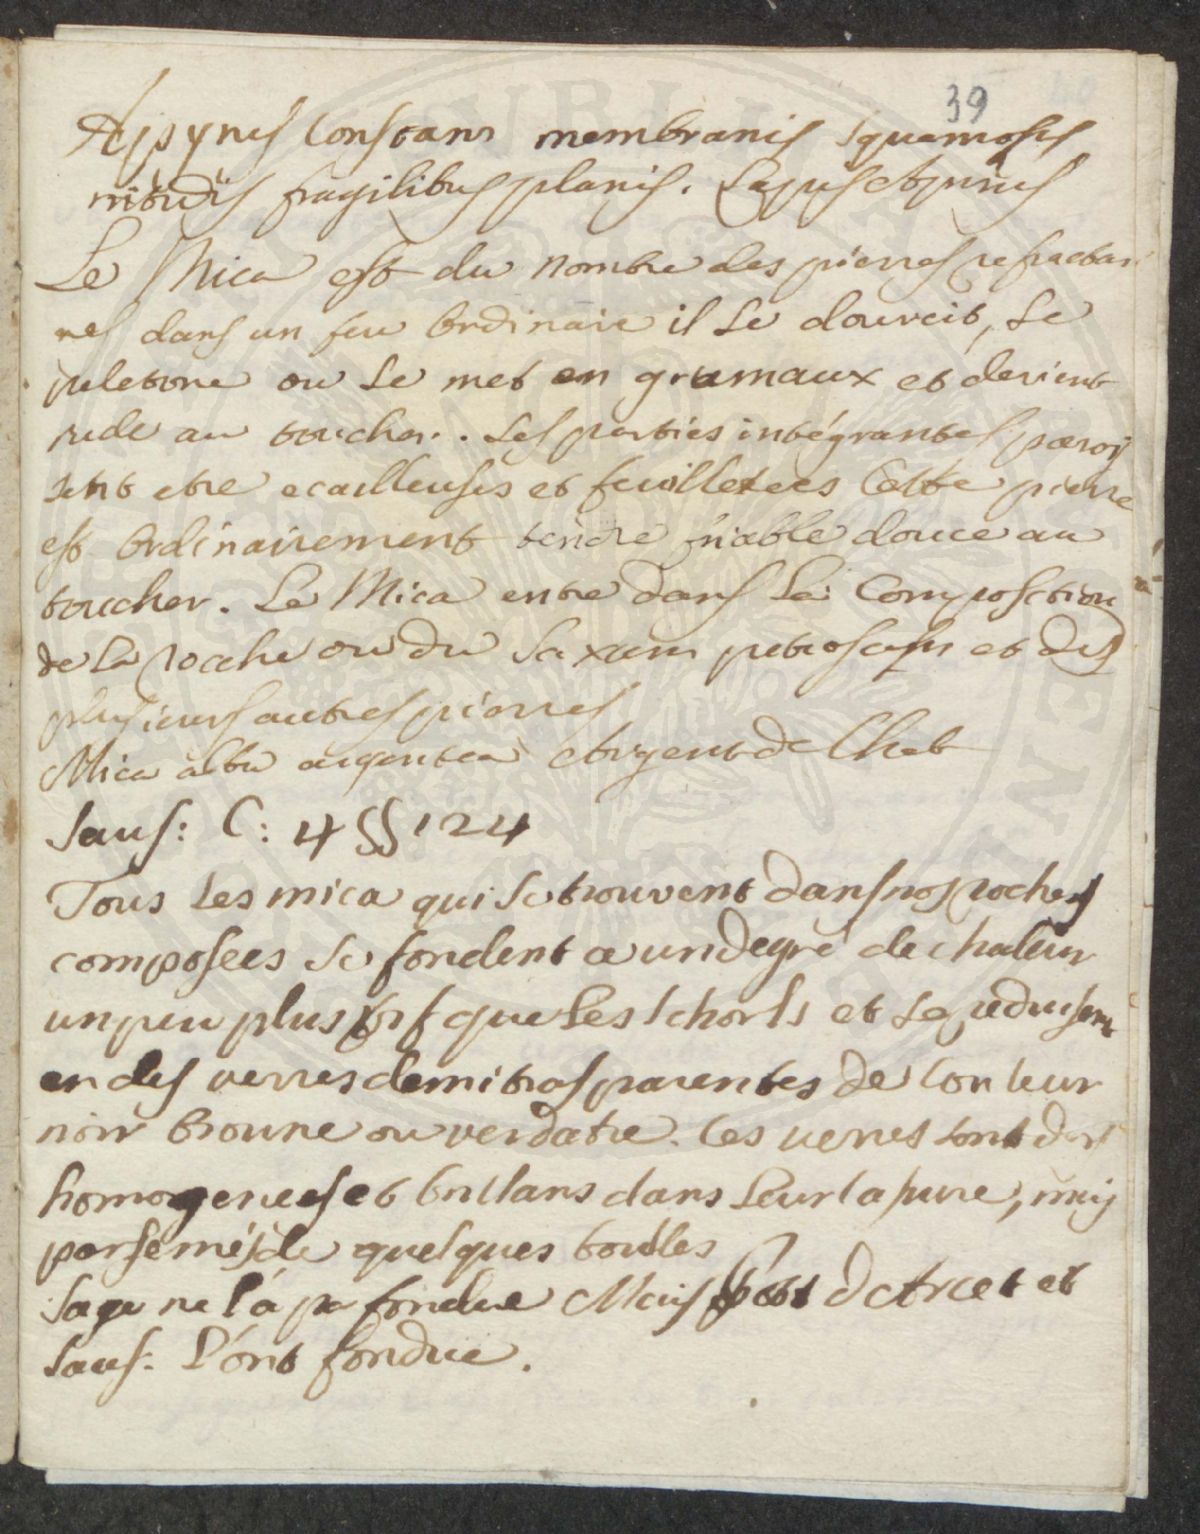 39
Apyrus Constans membranis squamosis
nitidis fragilibus planis. Lapis Apyrus
Le Mica est du nombre des pierres refractai
res dans un feu Ordinaire il Se doureit, Se
peletone ou Se met en grumaux et devient
rude au toucher. Ses parties intégrantes paroi
sent etre ecailleuses et feuilletees Cette pierre
est Ordinairement tendre friable douce au
toucher. Le Mica entre dans la Composition
de La roche ou du Saxum petrosum et des
plusieurs autres pierres
Mica alba argentea Argent de Chat
Saus: C: 4 §§ 124
Tous Les mica qui se trouvent dans nos roches
composées se fondent a un degré de chaleur
un peu plus fort que Les schorls et se reduisent
en des verres demi trasparentes de Couleur
noir broune ou verdatre. Ces verres sont
homogenes et brillans dans Leur cassure, mais
parsemés de quelques boulles
Sage ne l'a pa fondue Mais Pott d'Arcet et
Saus: L'ont fondue.